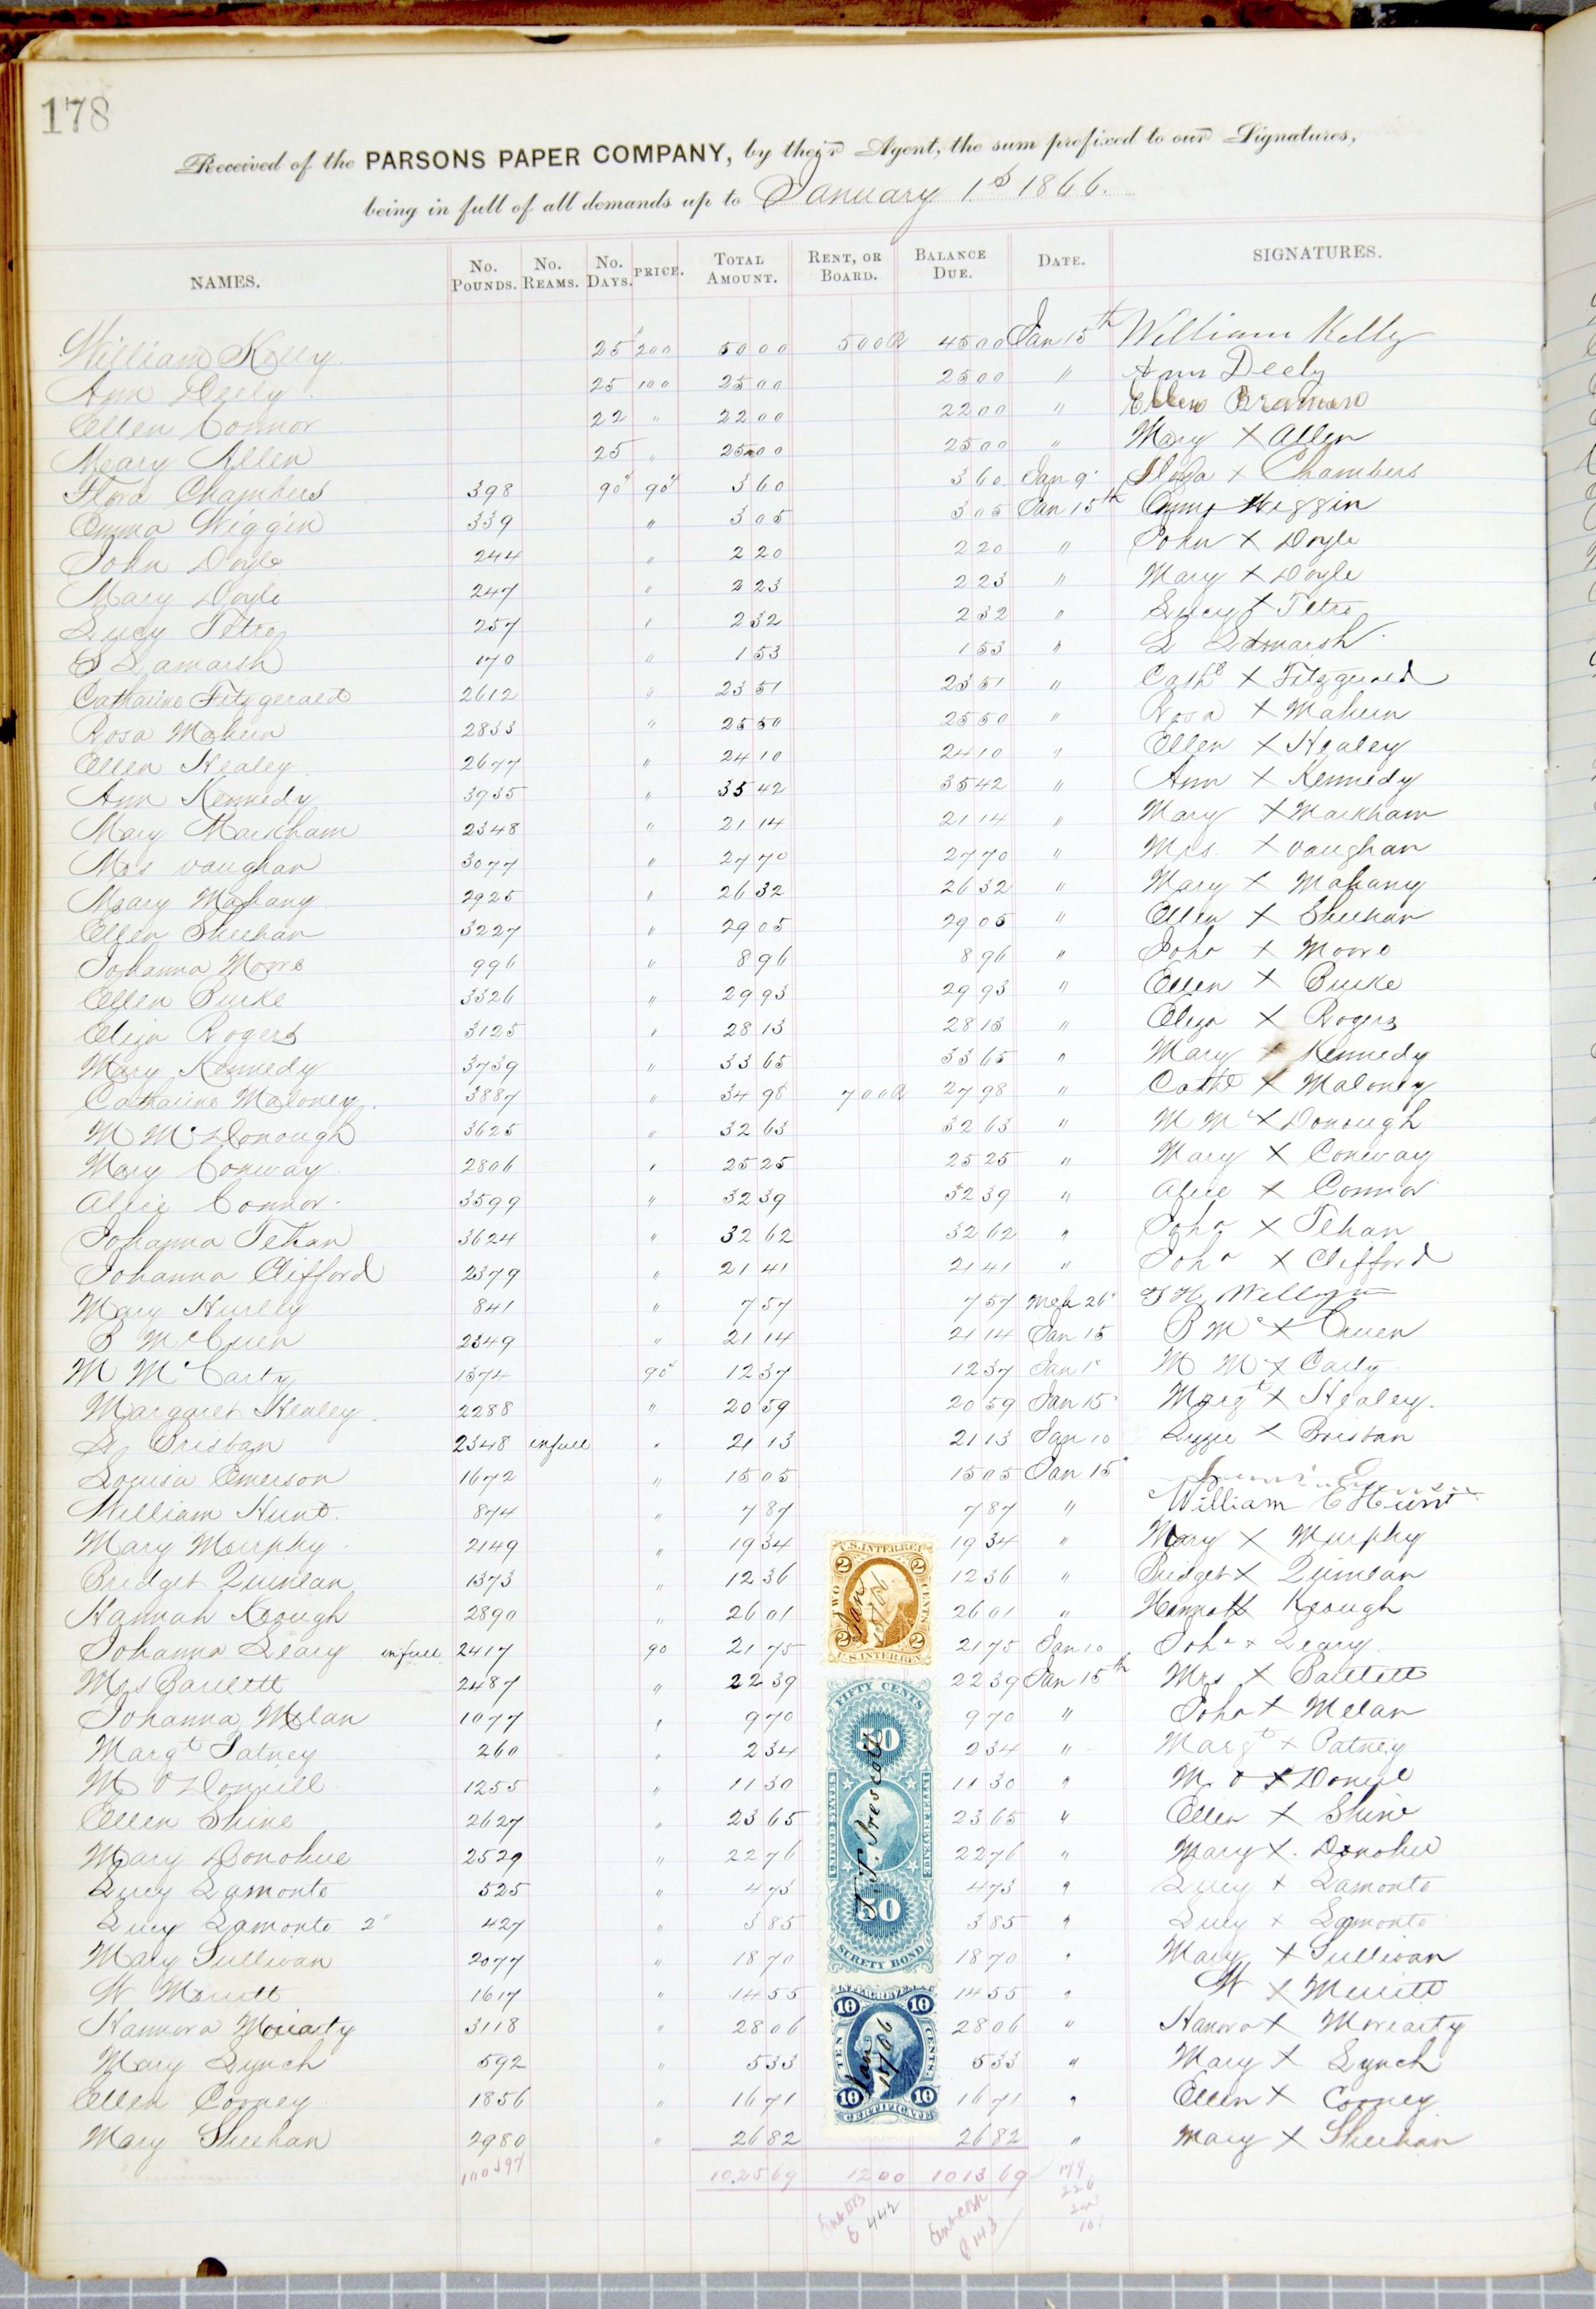 178
Received of the PARSONS PAPER COMPANY, by their Agent, the sum prefixed to our Signatures,
being in full of all demands up to January 1st 1866.
NAMES. No. Pounds. No. Reams. No. Days. PRICE. Total Amount. Rent, or Board. Balance Due. Date. SIGNATURES.
William Kelly. 25 200 5000 500 4500 Jan 15th William Kelly
Ann Deely. 25 100 2500 2500 " Ann Deely
Ellen Connor 22 " 2200 2200 " Ellen
Mary Allen 25 " 2500 2500 " Mary X Allen
Flora Chambers 398 90 90 360 360 Jan 9 Flora X Chambers
Emma Wiggin 339 " 305 305 Jan 15th Emma Wiggin
John Doyle 244 " 220 220 " John X Doyle
Mary Doyle 247 " 223 223 " Mary X Doyle
Lucy Tetro 257 " 232 232 " Lucy X Tetro
S Lamarsh 170 " 153 153 " Lamarsh
Catharine Fitzgerald 2612 " 2351 2351 " Cathe X Fitzgerald
Rosa Mahern 2833 " 2550 2550 " Rosa X Mahern
Ellen Healey 2677 " 2410 2410 " Ellen X Healey
Ann Kennedy 3935 " 3542 3542 " Ann X Kennedy
Mary Markham 2348 " 2114 2114 " Mary X Markham
Mrs Vaughan 3077 " 2770 2770 " Mrs. X Vaughan
Mary Mahany 2925 " 2632 2632 " Mary X Mahany
Ellen Sheehan 3227 " 2905 2905 " Ellen X Sheehan
Johanna Moore 996 " 896 896 " Joha X Moore
Ellen Burke 3326 " 2993 2993 " Ellen X Burke
Eliza Rogers 3125 " 2813 2813 " Eliza X Rogers
Mary Kennedy 3739 " 3365 3365 " Mary X Kennedy
Catharine Maloney. 3887 " 3498 700 2798 " Cathe X Maloney
M McDonough 3625 " 3263 3263 " M Mc X Donough
Mary Conway 2806 " 2525 2525 " Mary X Conway
Alice Connor 3599 " 3239 3239 " Alice X Connor
Johanna Tehan 3624 " 3262 3262 " Joha X Tehan
Johanna Clifford 2379 " 2141 2141 " Joha X Clifford
Mary Hurley 841 " 757 757 Mch 26
B McCuen 2349 " 2114 2114 Jan 15 B Mc X Cuen
M McCarty 1374 90 1237 1237 Jan M Mc X Carty
Margaret Healey. 2288 " 2059 2059 Jan 15 Margt X Healey.
Brisban 2348 in full " 2113 2113 Jan 10 Lizzie X Brisban
Louisa Emerson 1672 " 1505 1505 Jan 15
William Hunt. 874 " 787 787 " William E Hunt
Mary Murphy 2149 " 1934 1934 " Mary X Murphy
Bridget Quinlan 1373 " 1236 1236 " Bridget X Quinlan
Hannah Keough 2890 " 2601 2601 " Hannah X Keough
Johanna Leary in full 2417 90 2175 2175 Jan 10 Joha X Leary.
Mrs Bartlett 2487 " 2239 2239 Jan 15th Mrs X Bartlett
Johanna Melan 1077 " 970 970 " Joha X Melan
Margt Patney 260 " 234 234 " Margt X Patney
M O'Donnell 1255 " 1130 1130 " M. O X Donnell
Ellen Shine 2627 " 2365 2365 " Ellen X Shine
Mary Donohue 2529 " 2276 2276 " Mary X. Donohue
Lucy Lamonto 525 " 473 473 " Lucy X Lamonto
Lucy Lamonto 2" 427 " 385 385 " Lucy X Lamonto
Mary Sullivan 2077 " 1870 1870 " Mary X Sullivan
W Merritt 1617 " 1455 1455 " W X Merritt
Hannora Moriarty 3118 " 2806 2806 " Hanora X Moriarty
Mary Lynch 592 " 533 533 " Mary X Lynch
Ellen Cooney 1856 " 1671 1671 " Ellen X Cooney
Mary Sheehan 2980 " 2682 2682 " Mary X Sheehan
102569 1200 101369
442
143
U.S. INTER. REV.
2 2
TWO CENTS
Jan
2 2
U.S. INTER. REV.
FIFTY CENTS
50
UNITED STATES INTER. REVENUE
Prescott
50
SURETY BOND
INTER. REVENUE
10 10
TEN CENTS
Jan
10 10
CERTIFICATE